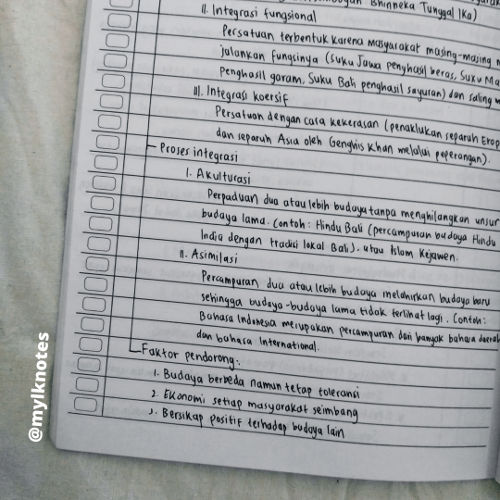 Bhinneka Tunggal Ika)
II. Integrasi fungsional
Persatuan terbentuk karena masyarakat masing-masing
jalankan fungsinya (suku Jawa penghasil beras, Suku
Penghasil garam, Suku Bali penghasil sayuran) dan saling
III. Integrasi koersif
Persatuan dengan cara kekerasan (penaklukan separuh Erop
dan separuh Asia oleh Genghis Khan melalui peperangan).
Proses integrasi
I. Akulturasi
Perpaduan dua atau lebih budaya tanpa menghilangkan unsur
budaya lama. Contoh: Hindu Bali (percampuran budaya Hindu
India dengan tradisi lokal Bali). atau Islam Kejawen.
II. Asimilasi
Percampuran dua atau lebih budaya melahirkan budaya baru
sehingga budaya-budaya lama tidak terlihat lagi. Contoh:
Bahasa Indonesia merupakan percampuran dari banyak bahasa daerah
dan bahasa International.
Faktor pendorong:
1. Budaya berbeda namun tetap toleransi
2. Ekonomi setiap masyarakat seimbang
3. Bersikap positif terhadap budaya lain
@mylknotes